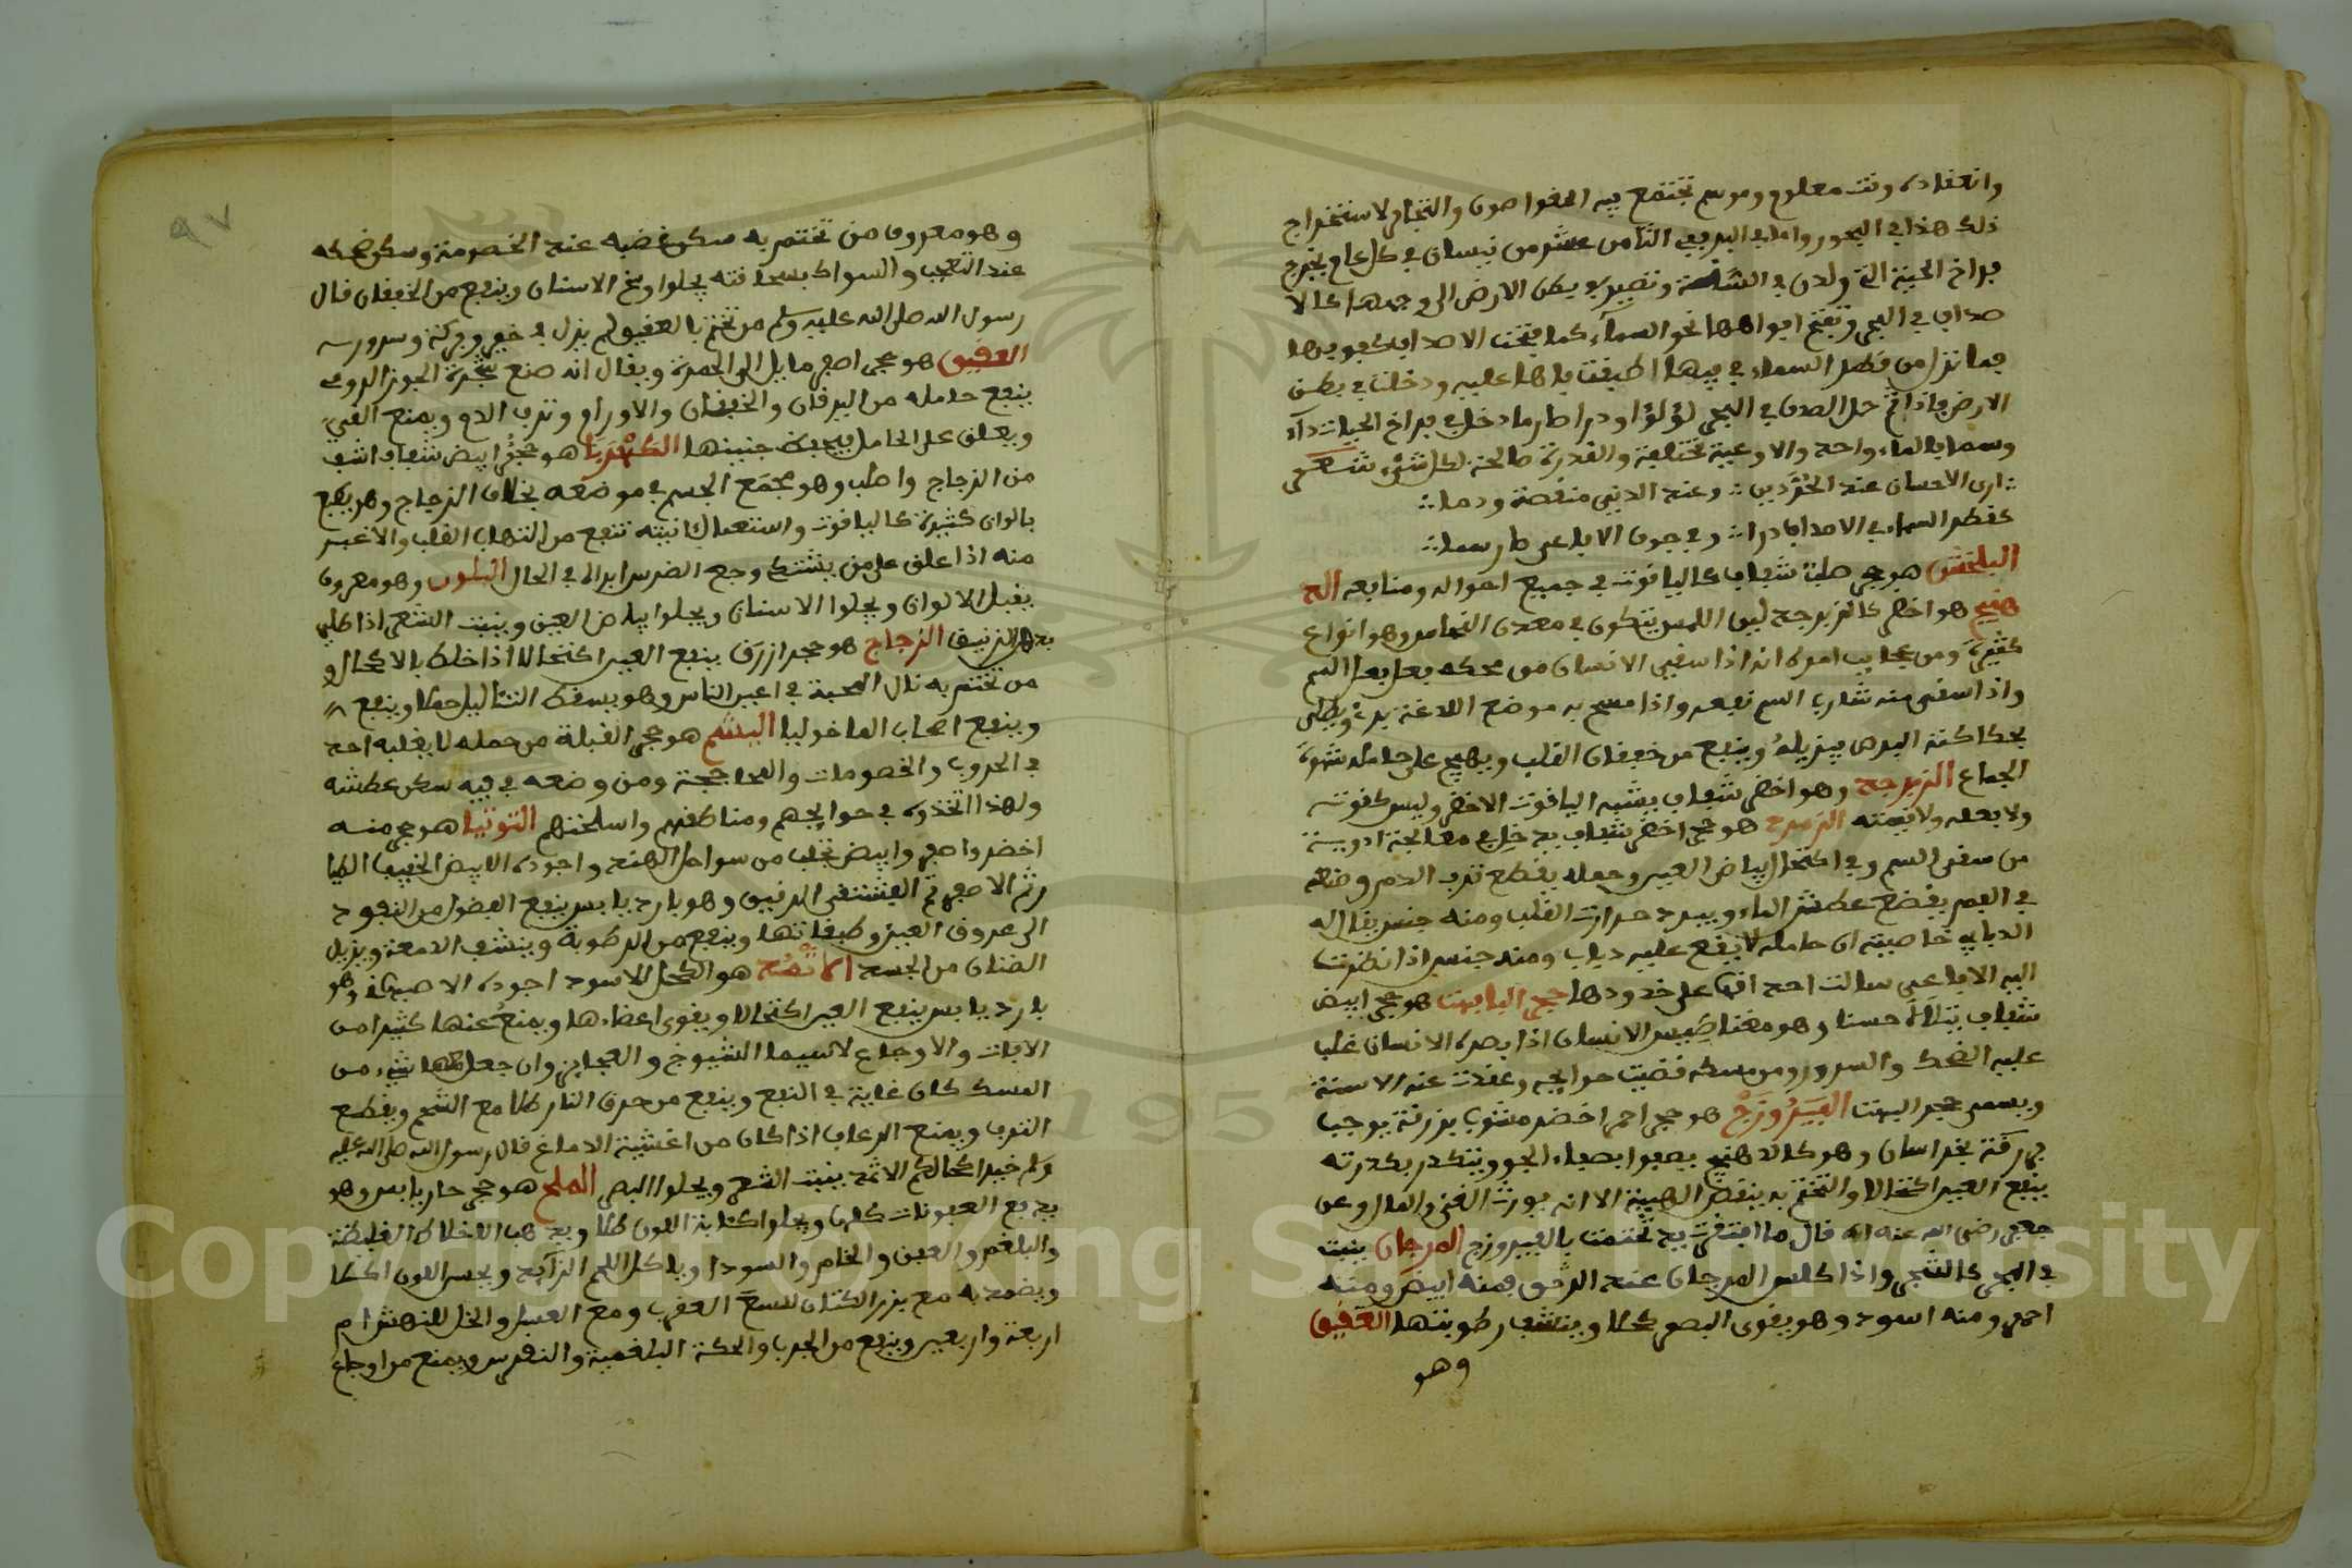 وانعقاده وقت معلوم وموسم تجتمع فيه الغواصون والتجار لاستخراج
ذلك هذا في البحور واما في البر ففي الثامن عشر من نيسان في كل عام تخرج
فراخ الحية التي ولدن في الشتاء وتصير في بطن الارض الى وجهها كالا
صداف في البحر وتفتح افواهها نحو السماء كما فتحت الاصداف
فما نزل من قطر السماء في فيها اطبقت فاها عليه ودخلت في بطن
الارض فاذا تم حل الصدف في البحر لؤلؤا ودرا طار ما دخل في فراخ الحيات داء
وسما فالماء واحد والاوعية مختلفة والقدرة صالحة لكل شيء شعر
ارى الاحسان عند الحر دين وعند الدني منقصة وذما
كقطر السماء في الاصداف درا وفي جوف الافاعي صار سما
البلخش هو حجر صلب شفاف كالياقوت في جميع احواله ومنافعه الد
هنج هو اخضر كالزبرجد لين اللمس يتكون في معدن النحاس وهو انواع
كثيرة ومن عجايب امره انه اذا سقي الانسان من محكه يفعل فعل السم
واذا سقي منه شارب السم نفعه واذا مسح به موضع اللدغة برئ ويطلى
بحكاكته البرص فيزيله وينفع من خفقان القلب ويهيج على حامله شهوة
الجماع الزبرجد وهو اخضر شفاف يشبه الياقوت الاخضر وليس كقوته
ولا فعله ولا قيمته الزمرد هو حجر اخضر شفاف يدخل في معالجة ادوية
من سقي السم وفي اكتحال بياض العين وحمله يقطع نزف الدم وضعه
في الفم يقطع عطش الماء ويبرد حرارت القلب ومنه جنس يقال له
الدبابي خاصيته ان حامله لا يقع عليه ذباب ومنه جنس اذا نظرت
اليه الافاعي سالت احداقها على خدودها حجر الباهت هو حجر ابيض
شفاف يتلالا حسنا وهو مغناطيس الانسان اذا بصره الانسان غلب
عليه الضحك والسرور ومن مسكه قضيت حوايجه وعقدت عنه الالسنة
ويسمى حجر البهت الفيروزج هو حجر اخضر مشوب بزرقة يوجد
بخراسان وهو كالدهنج يصفوا بصفاء الجو ويتكدر بكدرته
ينفع العين اكتحالا والتختم به ينقص الهيبة الا انه يورث الغنى والمال وعن
جعفر رضي الله عنه انه قال ما افتقرت يد تختمت بالفيروزج المرجان ينبت
في البحر كالشجر واذا كلس المرجان عقد الزئبق فمنه ابيض ومنه
احمر ومنه اسود وهو يقوي البصر كحلا وينشف رطوبتها العقيق
وهو
٩٧
وهو معروف من تختم به سكن غضبه عند الخصومة وسكن ضحكه
عند التعجب والسواك بسحاقته يجلوا وسخ الاسنان وينفع من الخفقان قال
رسول الله صلى الله عليه وسلم من تختم بالعقيق لم يزل في خير وبركة وسرور
العقيق هو حجر اصفر مايل الى الحمرة ويقال انه صمغ شجرة الجوز الرومي
ينفع حامله من اليرقان والخفقان والاورام ونزف الدم ويمنع القيء
ويعلق على الحامل فيحفظ جنينها الكهربا هو حجر ابيض شفاف اشف
من الزجاج واصلب وهو مجمع الجسم في موضعه بخلاف الزجاج وهو يصبغ
بالوان كثيرة كالياقوت واستعمال انيته تنفع من التهاب القلب والاغبر
منه اذا علق على من يشتكي وجع الضرس ابراه في الحال البلور وهو معروف
يقبل الالوان ويجلوا الاسنان ويجلوا بياض العين وينبت الشعر اذا طلي
بدهن الزنبق الزجاج هو حجر ازرق ينفع العين اكتحالا اذا خلط بالاكحال و
من تختم به نال المحبة في اعين الناس وهو يسقط الثاليل حملا وينفع
وينفع اصحاب الماخوليا اليشم هو حجر الغلبة من حمله لا يغلبه احد
في الحروب والخصومات والمحاججة ومن وضعه في فيه سكن عطشه
ولهذا اتخذوه في حوايجهم ومناطقهم واسلحتهم التوتيا هو حجر منه
اخضر واصفر وابيض تجلب من سواحل الهند واجوده الابيض الخفيف الطيا
ر ثم الاصفر ثم الفستقي الرقيق وهو بارد يابس ينفع الفضول من النفوذ
الى عروق العين وطبقاتها وينفع من الرطوبة وينشف الدمعة ويزيل
الصنان من الجسد الاثمد هو الكحل الاسود اجوده الاصبهاني وهو
بارد يابس ينفع العين اكتحالا ويقوي اعضاءها ويمنع عنها كثيرا من
الافات والاوجاع لاسيما الشيوخ والعجايز وان جعل معه شيء من
المسك كان غاية في النفع وينفع من حرق النار طلا مع الشحم ويقطع
النزف ويمنع الرعاف اذا كان من اغشية الدماغ قال رسول الله صلى الله عليه
وسلم خير اكحالكم الاثمد ينبت الشعر ويجلوا البصر الملح هو حجر حار يابس وهو
يدفع العفونات كلها ويجلوا كتابة اللون طلا ويذهب الاخلاط الغليظة
والبلغم والعفن والخام والسودا وياكل اللحم الزايد ويحسن اللون اكلا
ويضمد به مع بزر الكتان للسع العقرب ومع العسل والخل للنهش ام
اربعة واربعين وينفع من الجرب والحكة البلغمية والنقرس ويمنع من اوجاع
Copyright © King Saud University
195